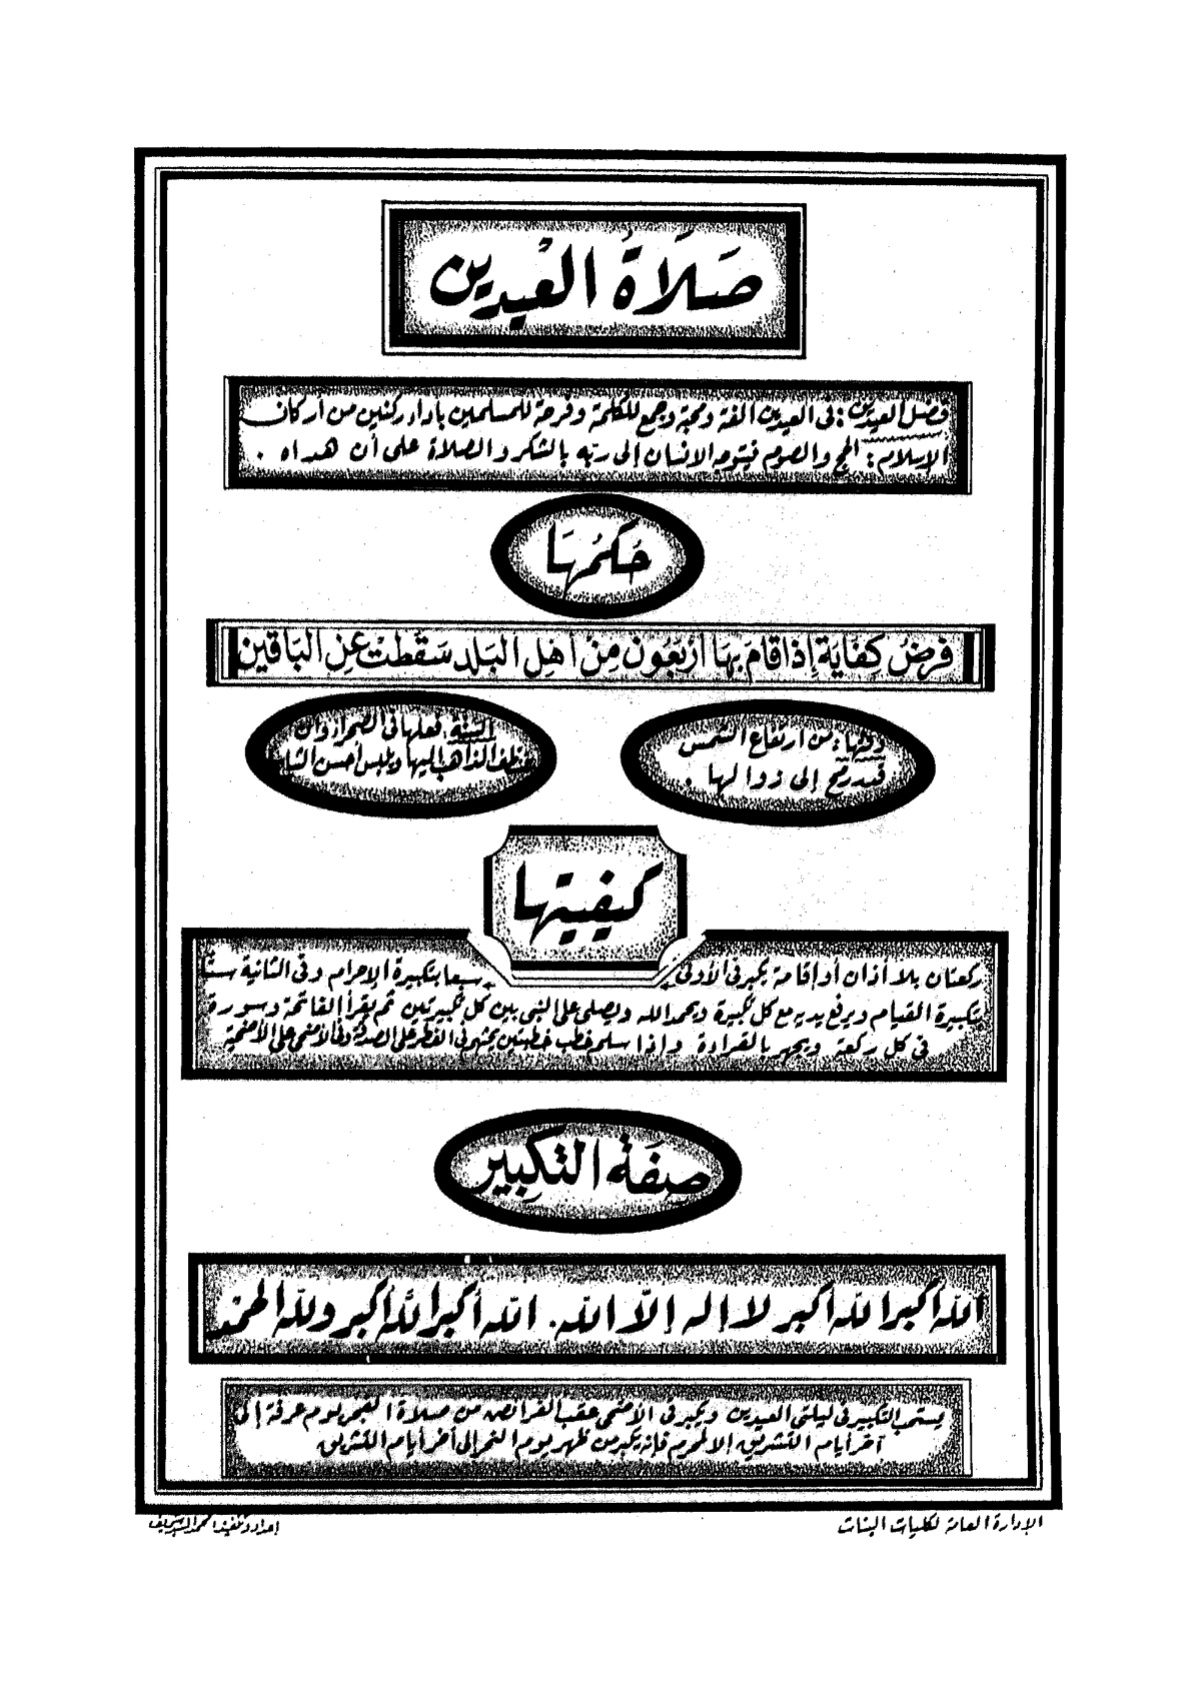 صَلَاةُ العْيدين
فضل العيدين: في العيدين الفة ومحبة وجمع للكلمة وفرحة للمسلمين باداء ركنين من أركان
الإسلام: الحج والصوم فيتوجه الانسان إلى ربّه بالشكر والصلاة على أن هداه .
حُكمُهَا
فرضُ كِفَايَة إِذا قامَ بهَا أربَعُون مِنْ أهْلِ البَلد سَقَطَتْ عَنِ البَاقين
وقتها: من ارتفاع الشمس
قيد رمح إلى زوالها .
السنة فعلها في الصحراء وأن
الذاهب إليها ويلبس أحسن
كيفيتها
ركعتان بلا أذان أو إقامة يكبر في الأولى سبعا بتكبيرة الإحرام وفي الثانية ستّا
بتكبيرة القيام ويرفع يديه مع كل تكبيرة ويحمد الله ويصلى على النبي بين كل تكبيرتين ثم يقرأ الفاتحة وسورة
في كل ركعة ويجهر بالقراءة وإذا سلم خطب خطبتين يحثهم في الفطر على الصدقة وفي الأضحى على الأضحية
صِفَة التكِبير
الله أكبر الله أكبر لا إله إلّا الله. الله أكبر الله أكبر ولله الحمد
يستحب التكبير في ليلتي العيدين ويكبر في الأضحى عقب الفرائض من صلاة الفجر يوم عرفة إلى
آخر أيام التشريق إلا المحرم فإنه يكبر من ظهر يوم النحر إلى آخر أيام التشريق
الإدارة العامة لكليات البنات
إعداد وتنفيذ محمد